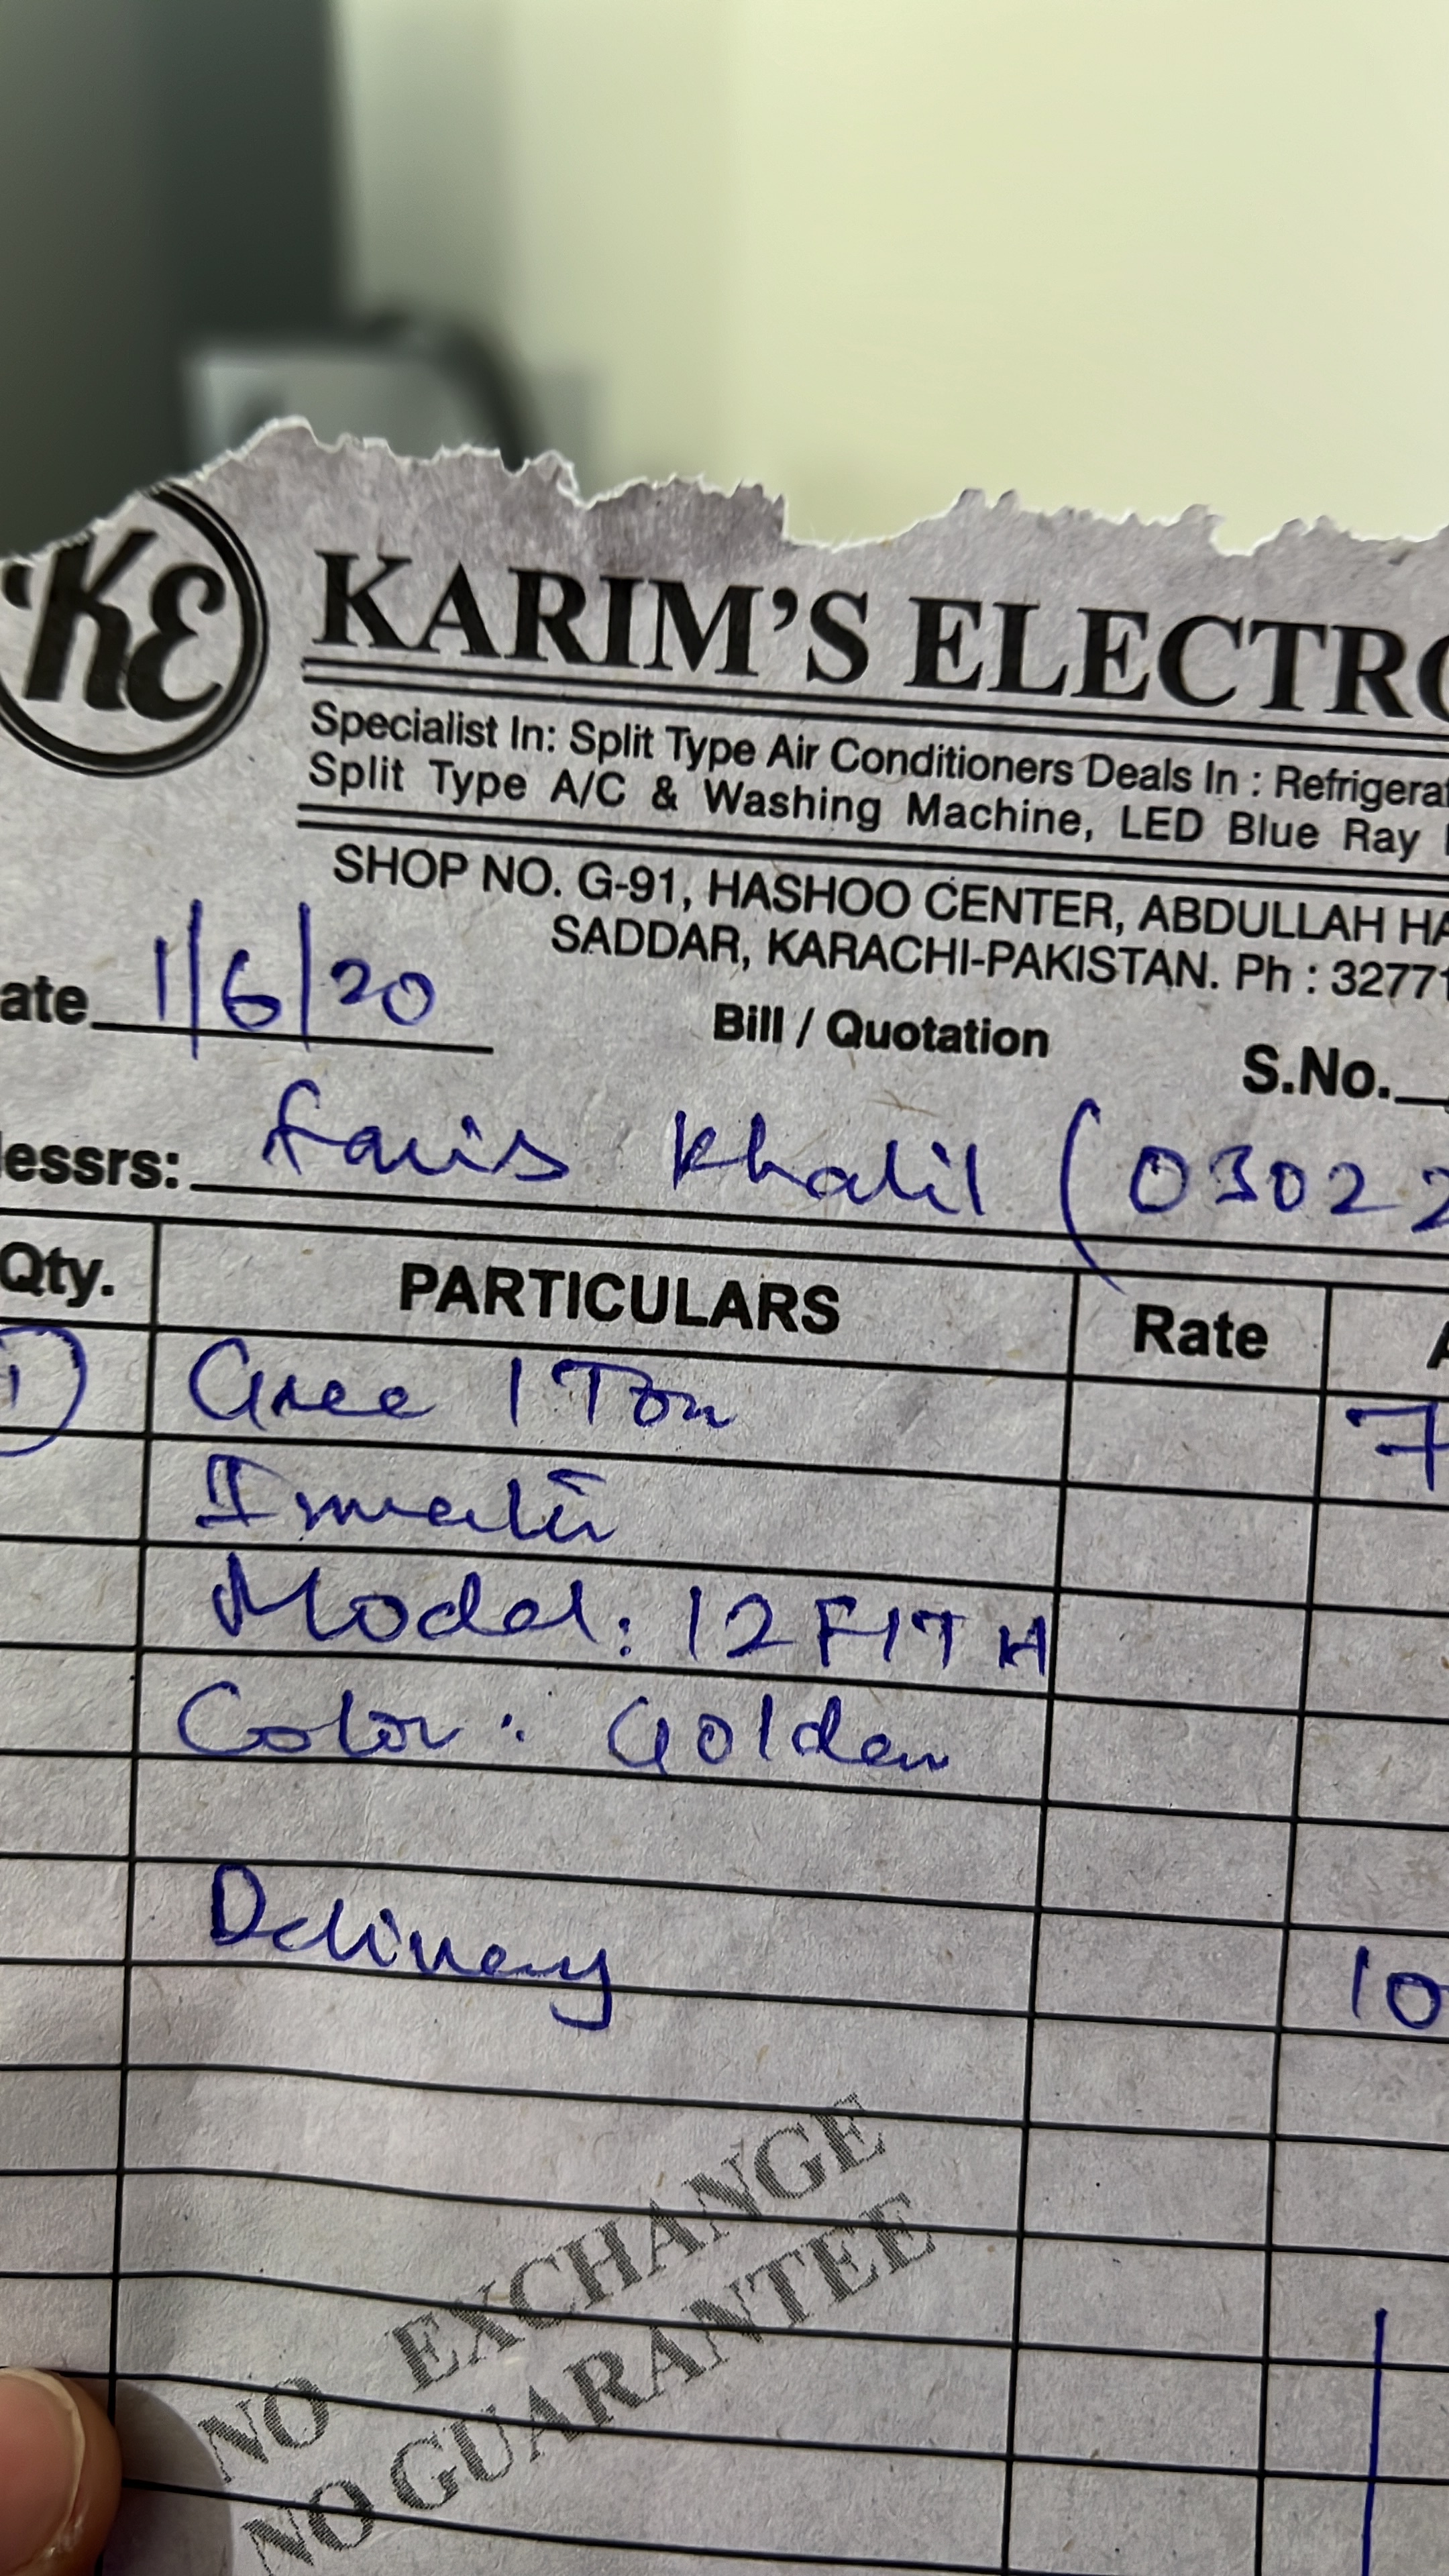 KE
KARIM'S ELECTRO
Specialist In: Split Type Air Conditioners Deals In : Refrigerat
Split Type A/C & Washing Machine, LED Blue Ray
SHOP NO. G-91, HASHOO CENTER, ABDULLAH HA
SADDAR, KARACHI-PAKISTAN. Ph : 32771
ate 1/6/20
Bill / Quotation
S.No.
essrs: Faris Khalil (03022
Qty. PARTICULARS Rate A
1 Gree 1 Ton 7
Model: 12FITH
Color: Golden
Delivery 10
NO EXCHANGE
NO GUARANTEE